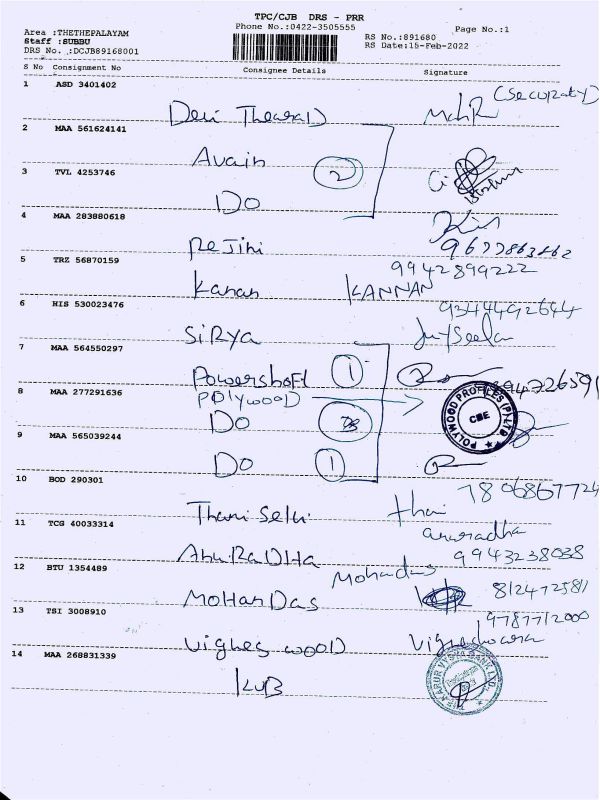 TPC/CJB DRS - PRR
Phone No.:0422-3505555
Page No.:1
Area :THETHEPALAYAM
Staff :SUBBU
DRS No. :DCJB89168001
RS No.:891680
RS Date:15-Feb-2022
S No Consignment No Consignee Details Signature
1 ASD 3401402
(Security)
2 MAA 561624141
Avain
2
3 TVL 4253746
Do
4 MAA 283880618
Rejini
5 TRZ 56870159
9942899222
Kanan KANNAN
6 HIS 530023476
9344492644
SiRya
7 MAA 564550297
Powershaft 1
8 MAA 277291636
POlywOOD
Do
POLYWOOD PROFILES (P) LTD
CBE
9 MAA 565039244
Do 1
10 BOD 290301
7806867724
Thamiselvi
11 TCG 40033314
anuradha
AnuRaDHa 9943238038
12 BTU 1354489
Mohadas
MOHanDas 812472581
13 TSI 3008910
9787712000
Vighes wOOD Vigneshwara
14 MAA 268831339
KVB
THE KARUR VYSYA BANK LTD.